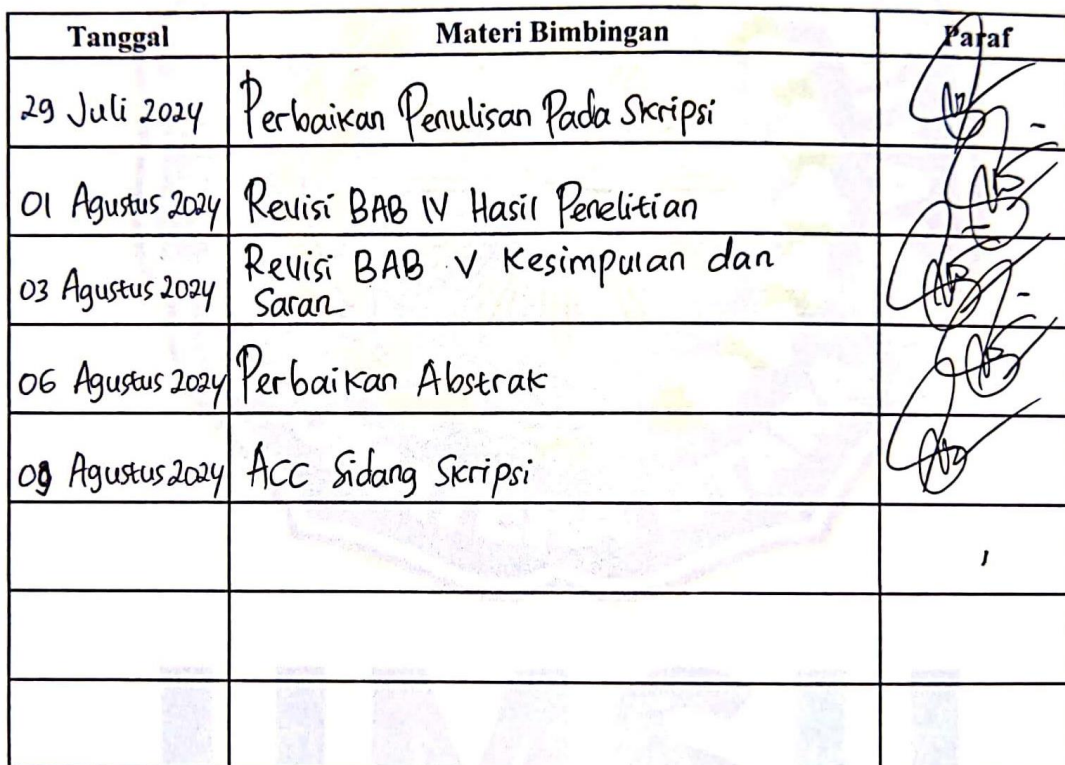 Tanggal Materi Bimbingan Paraf
29 Juli 2024 Perbaikan Penulisan Pada Skripsi
01 Agustus 2024 Revisi BAB IV Hasil Penelitian
03 Agustus 2024 Revisi BAB V Kesimpulan dan
Saran
06 Agustus 2024 Perbaikan Abstrak
Agustus 2024 ACC Sidang Skripsi